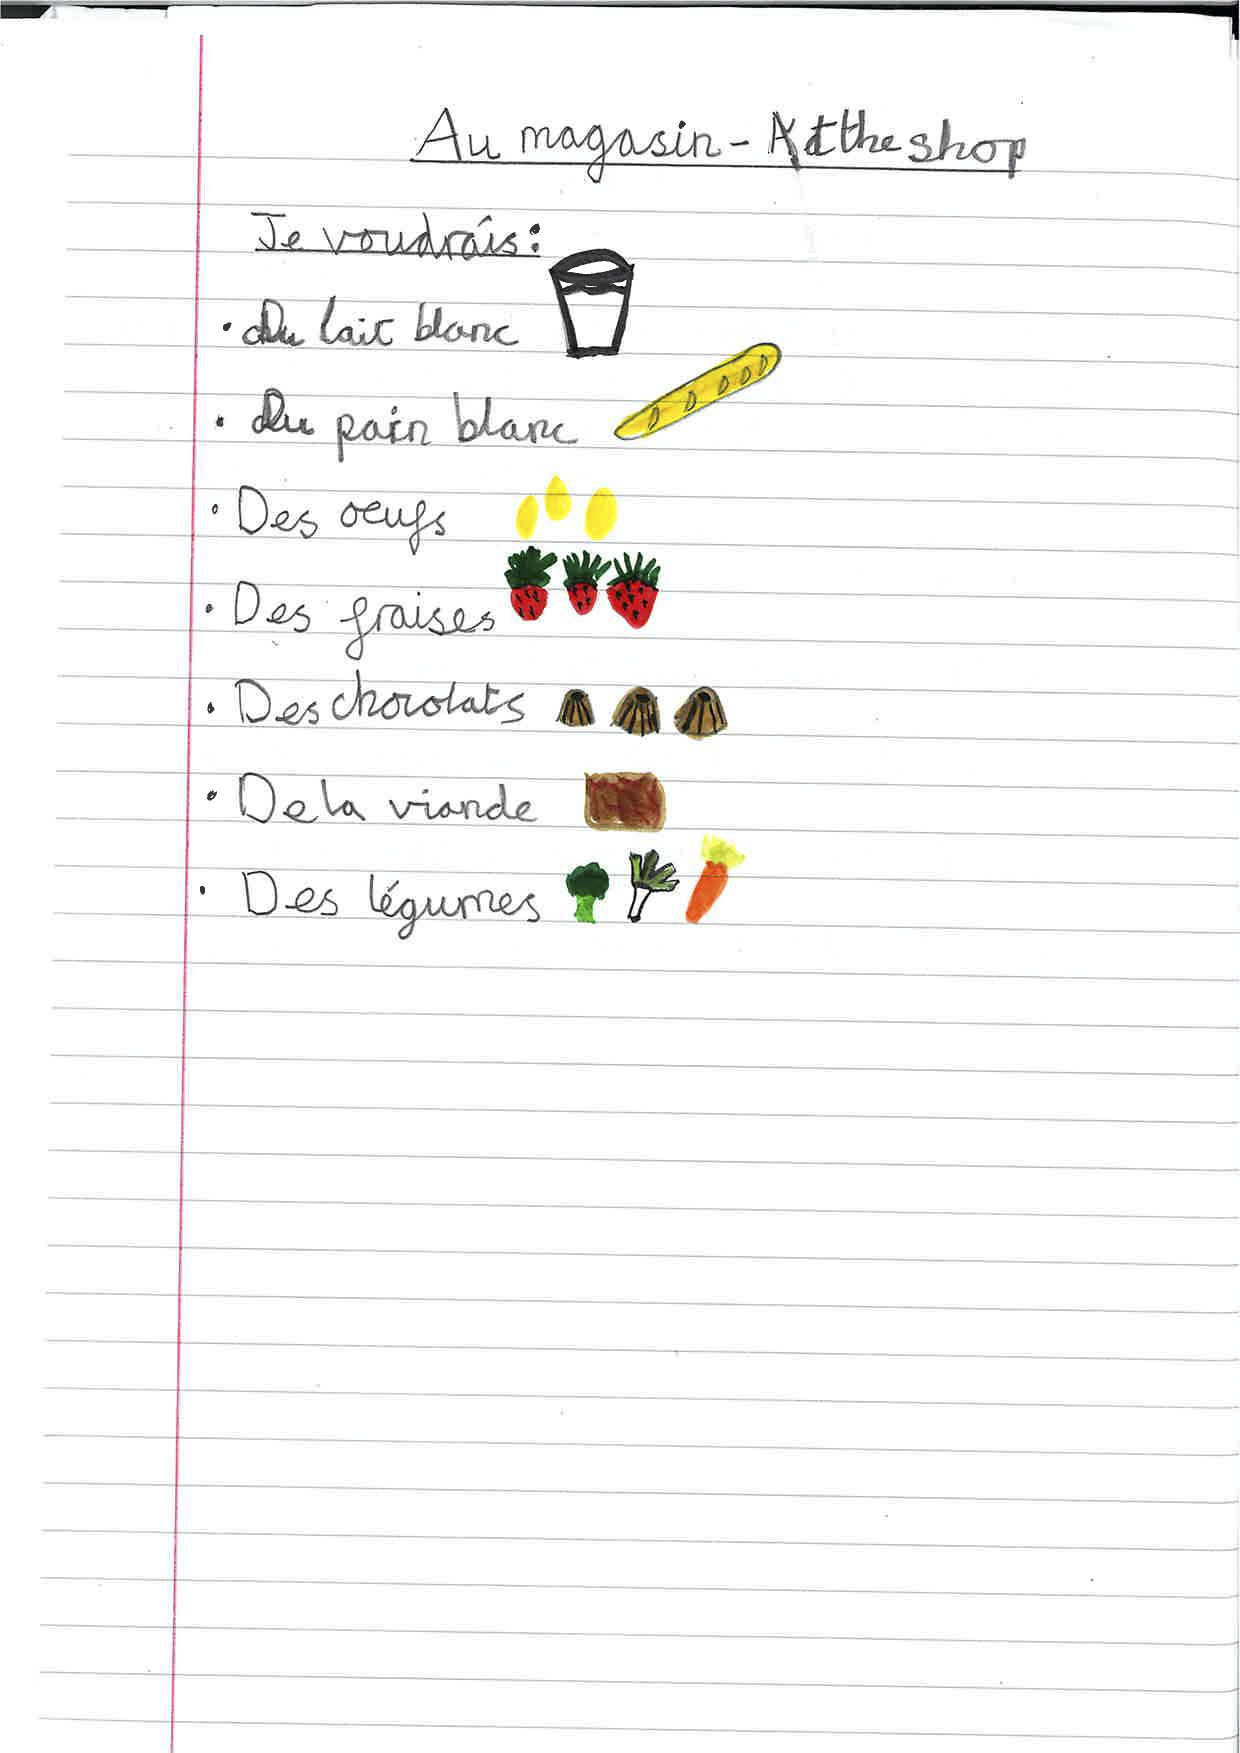 Au magasin - At the shop
Je voudrais:
• Du lait blanc
• Du pain blanc
• Des oeufs
• Des fraises
• Des chocolats
• De la viande
• Des légumes